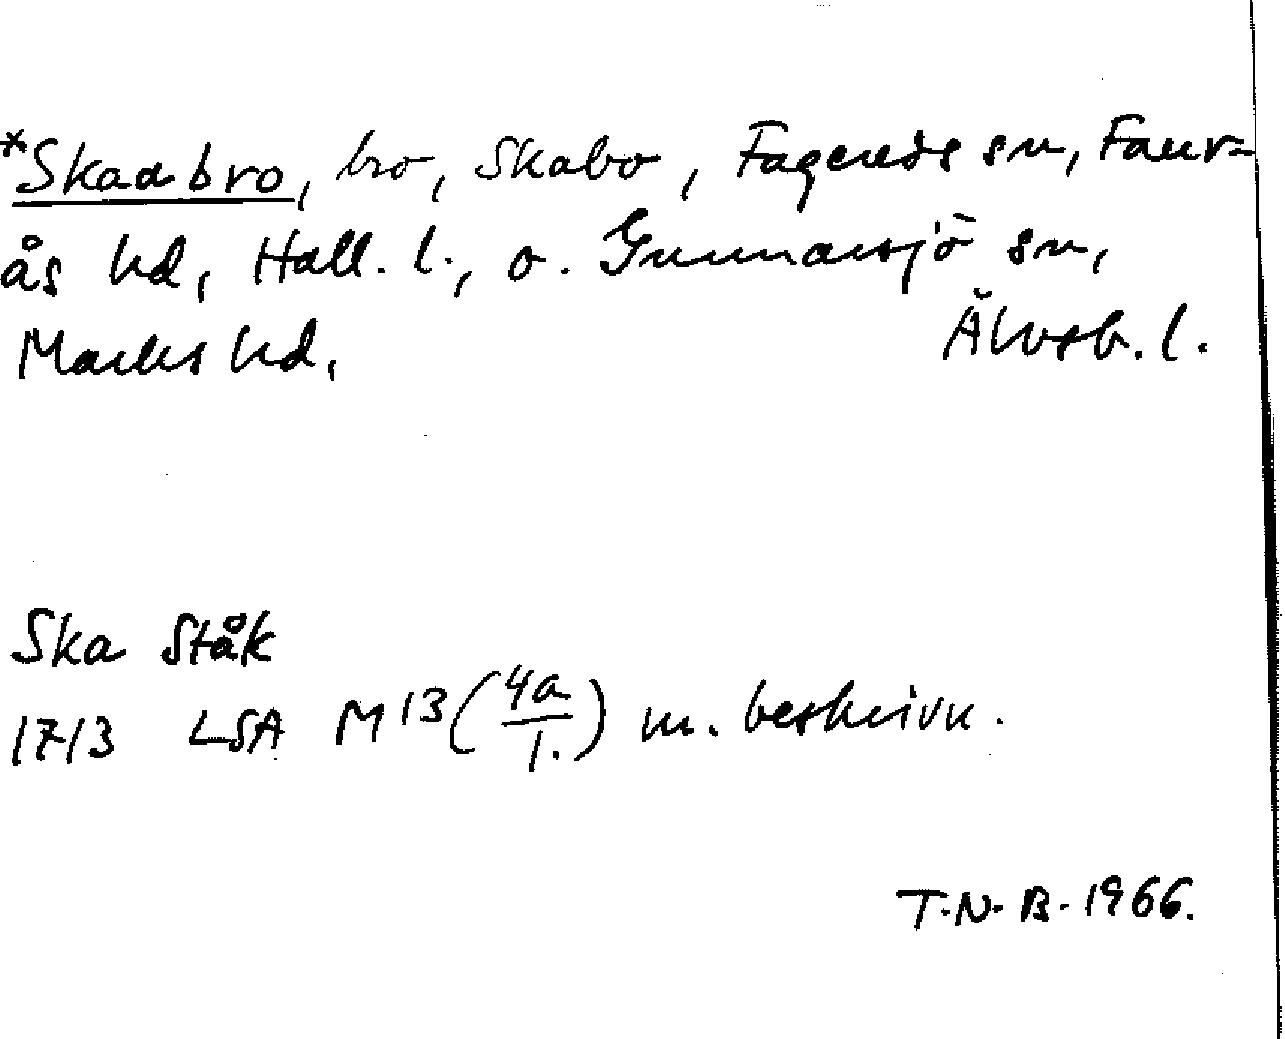 *Skaabro, bro, Skabo, Fagereds sn, Faur=
ås hd, Hall. l., o. Gunnarsjö sn,
Marks hd, Älvsb. l.
Ska Ståk
1713 LSA M13(4a/1.) m. beskrivn.
T.N.B. 1966.